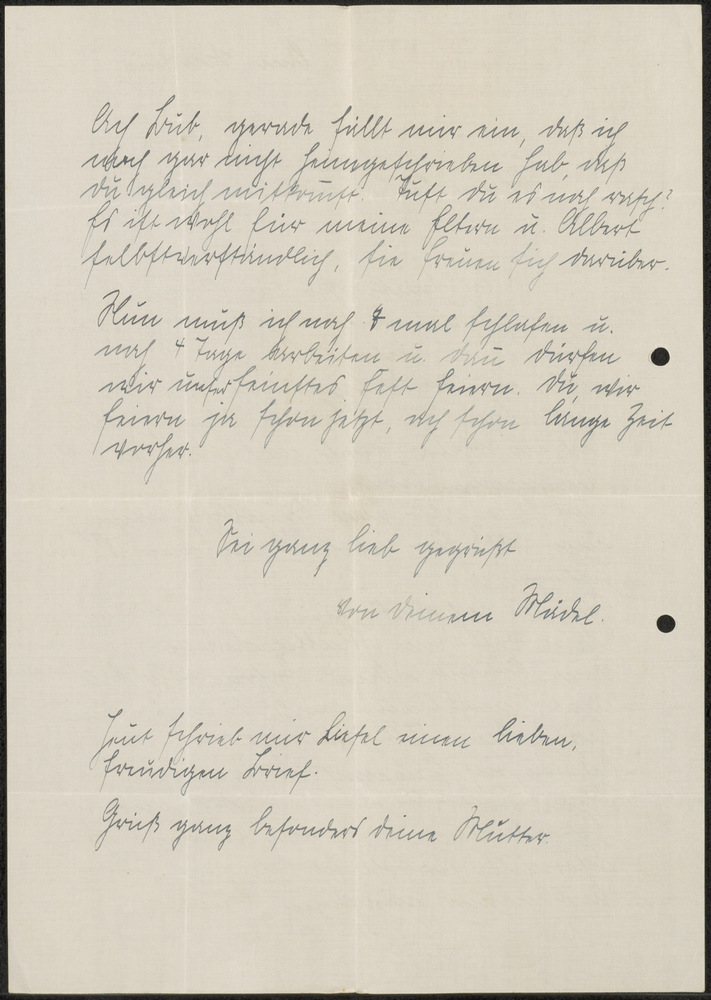 Ach Bub, gerade fällt mir ein, daß ich
noch gar nicht heimgeschrieben hab, daß
du gleich mitkommst. Tust du es noch rasch?
Es ist wohl für meine Eltern u. Albert
selbstverständlich, sie freuen sich darüber.
Nun muß ich noch 4 mal schlafen u.
noch 4 Tage arbeiten u. dan dürfen
wir unser feinstes Fest feiern. Du, wir
feiern ja schon jetzt, ach schon lange Zeit
vorher.
Sei ganz lieb gegrüßt
von deinem Mädel.
Heut schrieb mir Liesel einen lieben,
freudigen Brief.
Grüß ganz besonders deine Mutter.